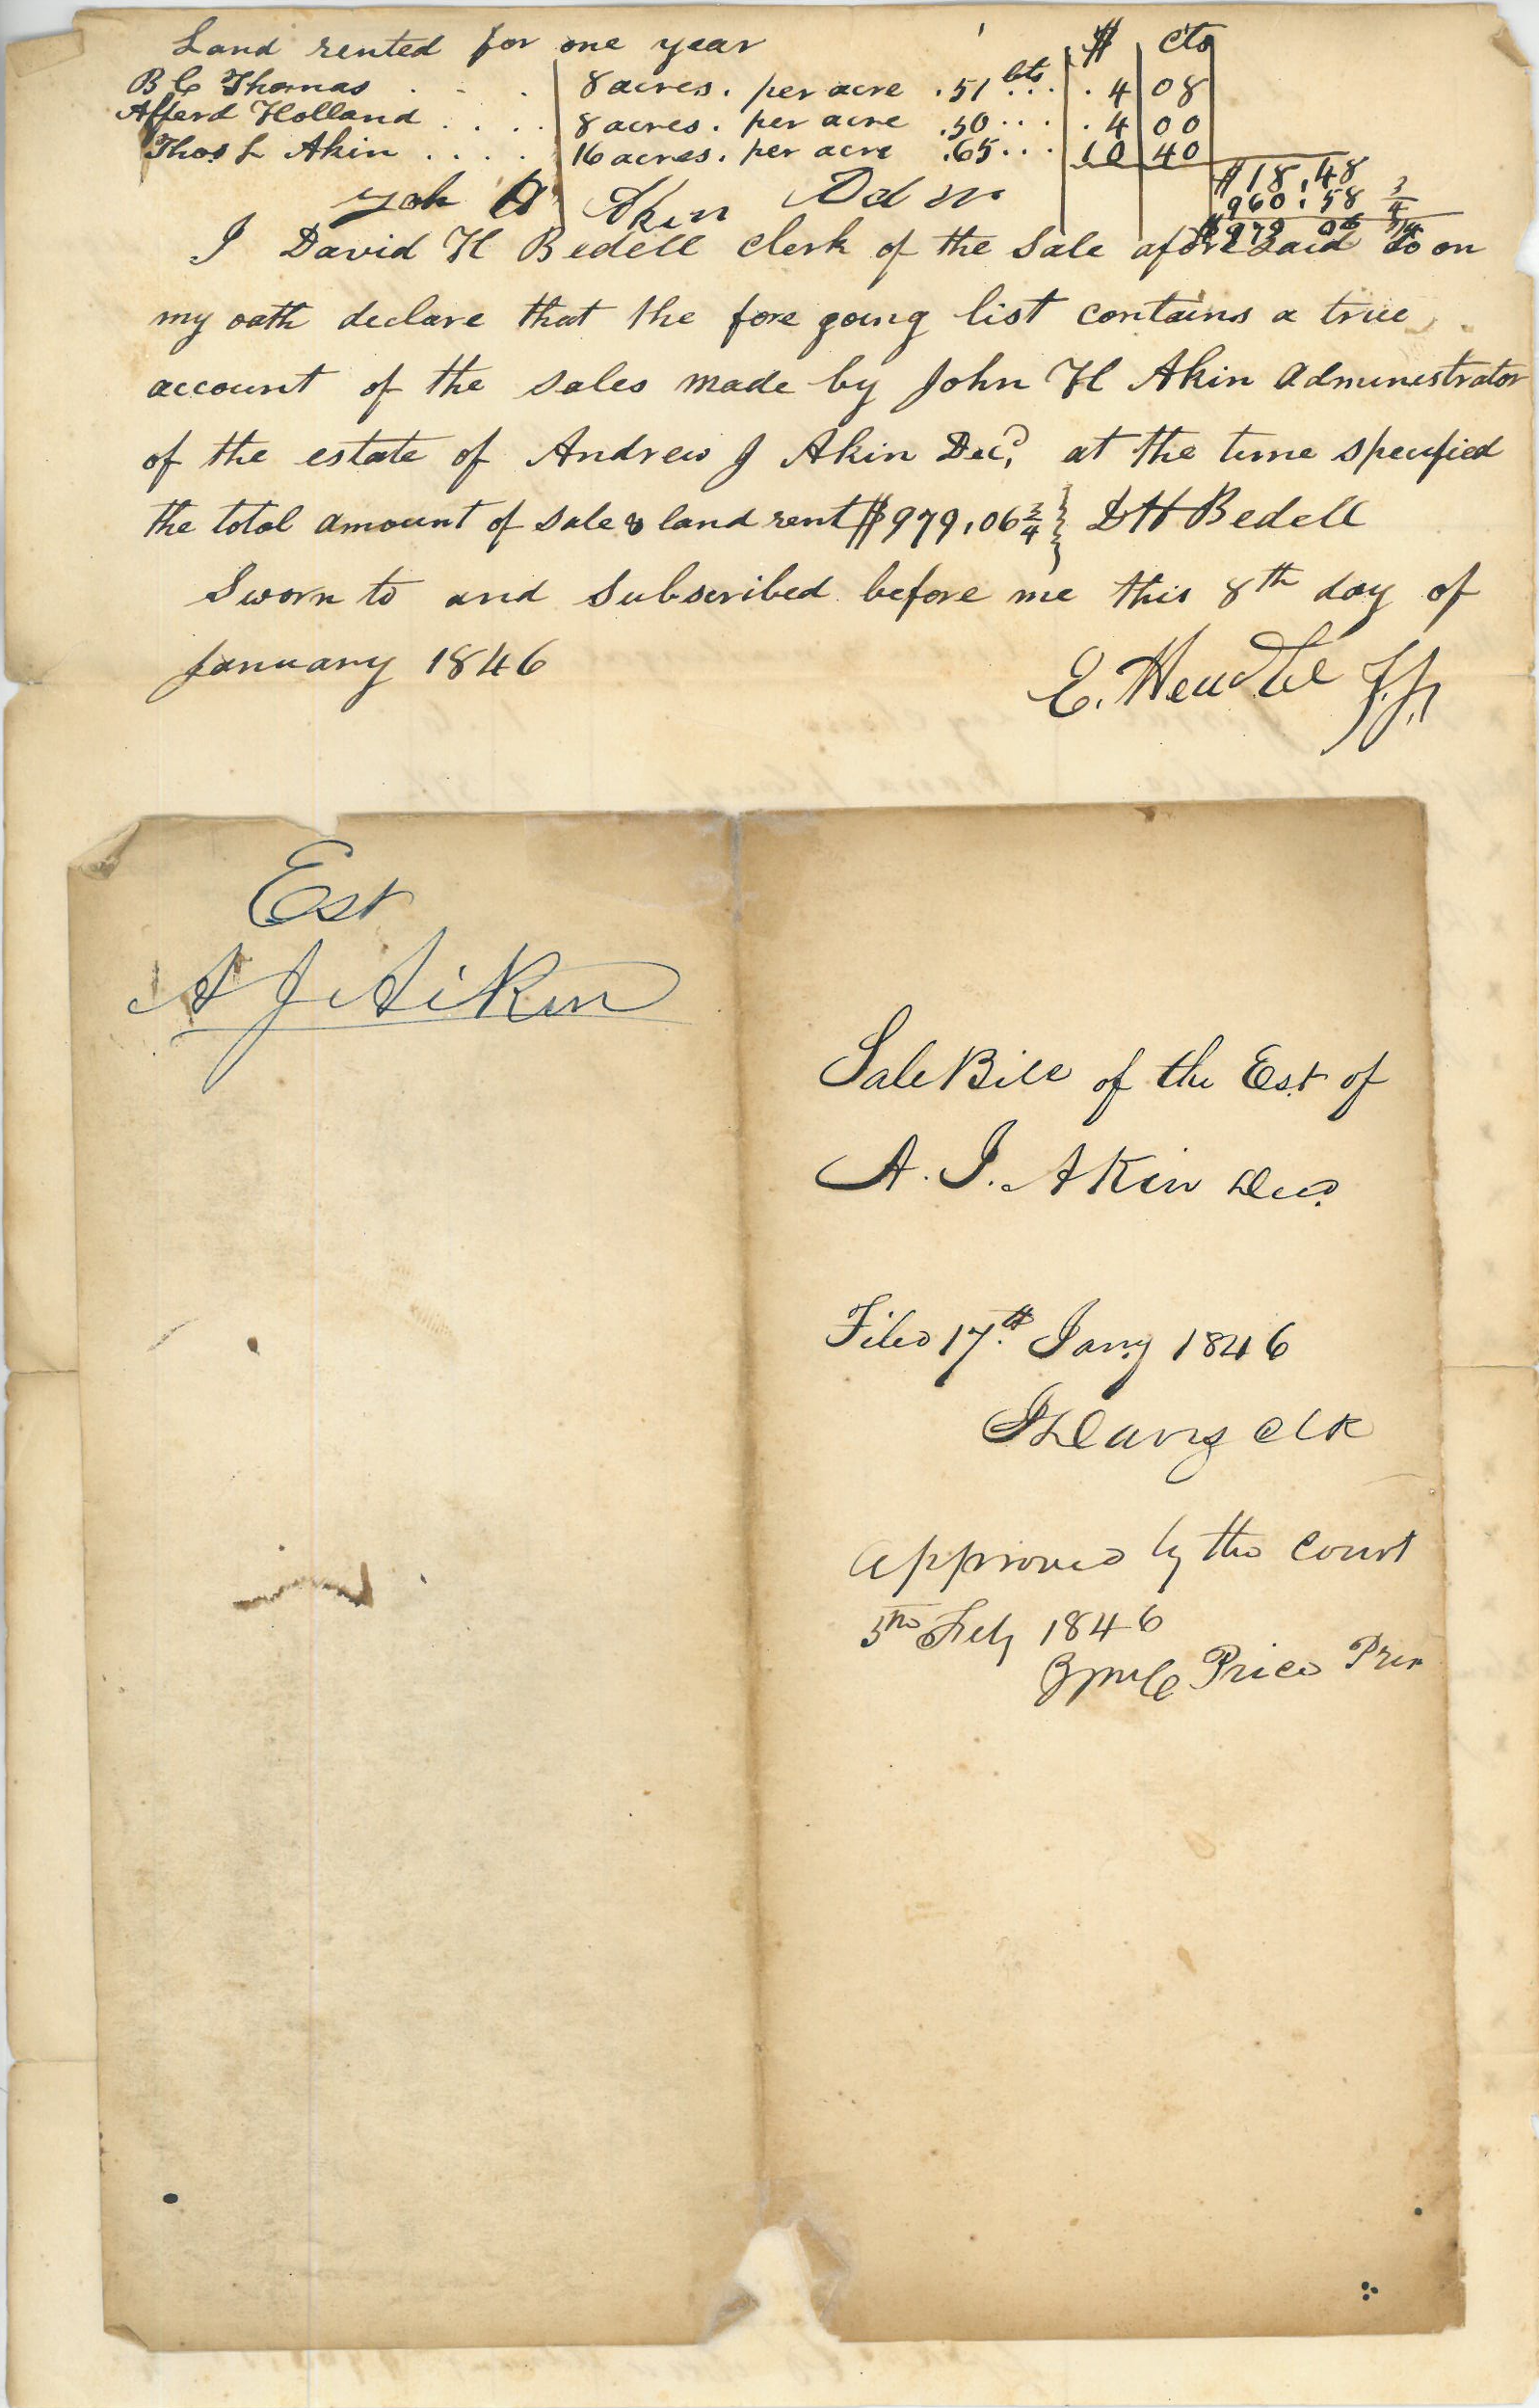 Land rented for one year $ cts
B C Thomas . . . 8 acres . per acre .51 cts . . 4 08
Afferd Holland . . . . 8 acres . per acre .50 . . . . 4 00
Thos L Akin . . . . 16 acres . per acre .65 . . . 10 40
$18.48
960.58 3/4
$979 06 3/4
Joh H Akin Adm
I David H Bedell Clerk of the Sale afore said do on
my oath declare that the fore going list contains a true
account of the sales made by John H Akin Administrator
of the estate of Andrew J Akin Decd, at the time specified
the total amount of sale & land rent $979,06 3/4 } D H Bedell
Sworn to and Subscribed before me this 8th day of
January 1846
E. J.P.
Est
A J Aiken
Sale Bill of the Est of
A. J. Akin Decd
Filed 17th Jany 1846
Clk
Approved by the Court
5th Feby 1846
Price Pres